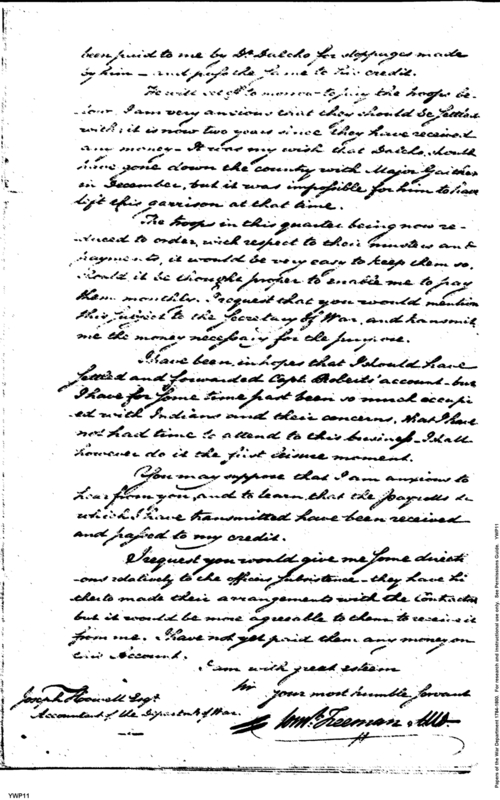 been paid to me by Dr. Dalcho for stoppages made
by him – and pass the same to his credit.
He will set off to morrow to pay the troops be-
low. I am very anxious that they should be settled
with; it is now two years since they have received
any money – It was my wish that Dalcho should
have gone down the country with Major Gaither
in December, but it was impossible for him to have
left this garrison at that time.
The troops in this quarter being now re-
duced to order, with respect to their musters and
payments, it would be very easy to keep them so.
Should it be thought proper to enable me to pay
them monthly. I request that you would mention
this subject to the Secretary of War, and transmit
me the money necessary for the purpose.
I have been in hopes that I should have
settled and forwarded Capt. Roberts' account – but
I have for some time past been so much occupi-
ed with Indians and their concerns, that I have
not had time to attend to this business – I shall
however do it the first leisure moment.
You may suppose that I am anxious to
hear from you, and to learn, that the payrolls &c
which I have transmitted have been received
and passed to my credit.
I request you would give me some directi-
ons relatively to the officers subsistence – they have hi-
therto made their arrangements with the Contractor
but it would be more agreeable to them to receive it
from me. I have not yet paid them any money on
this Account.
I am with great esteem
Sir
your most humble Servant
Joseph Howell Esqr.
Accountant of the Department of War.
Freeman
YWP11
Papers of the War Department 1784-1800. For research and instructional use only. See Permissions Guide. YWP11